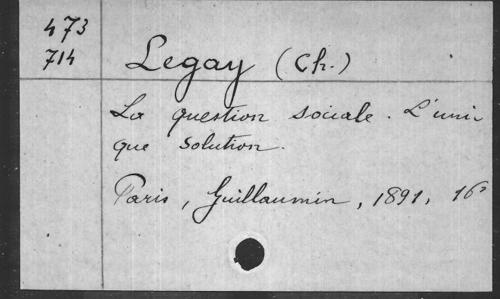 473
714
Legay (Ch.)
La question sociale. L'uni-
que solution.
Paris, Guillaumin, 1891, 16°